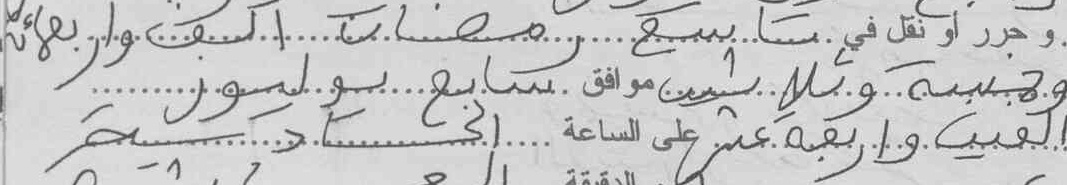 و حرر أو نقل في تاسع رمضان الف واربعمائة
وخمسة وثلاثين موافق سابع يوليوز
الفين واربعة عشر على الساعة الحادية عشر
الدقيقة